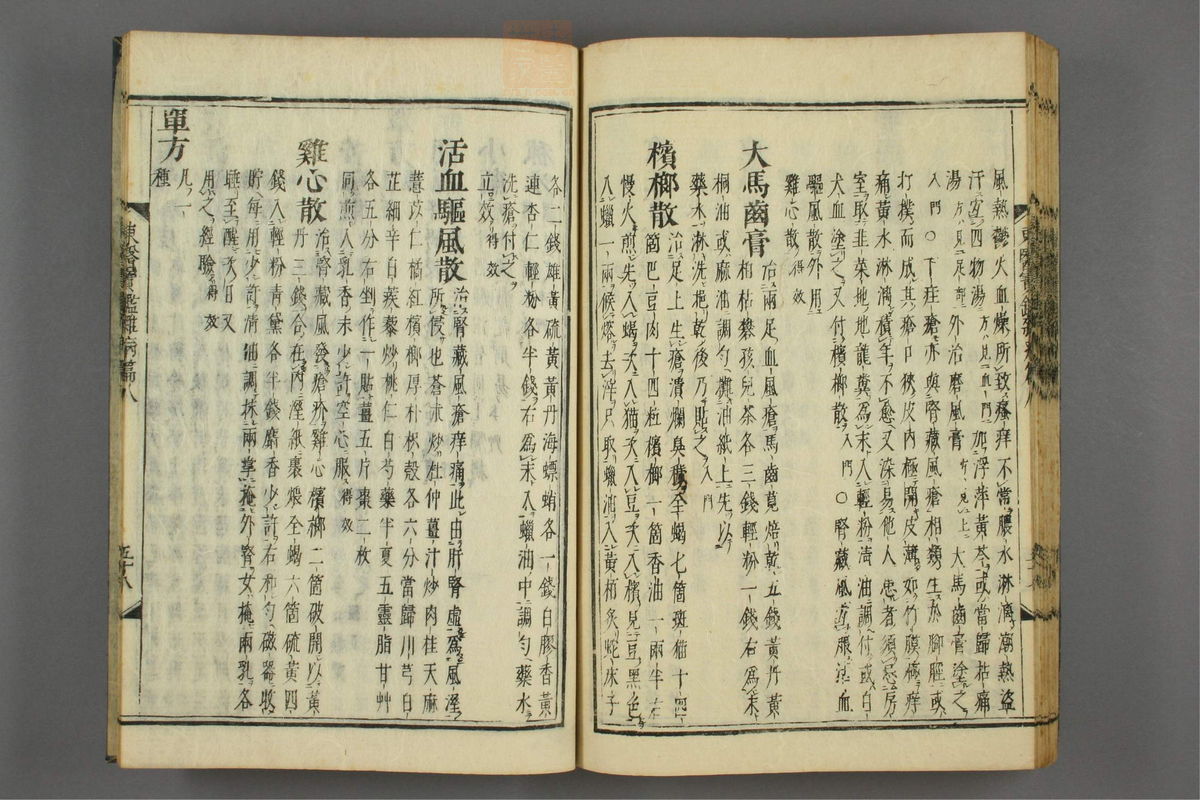 風熱鬱火血燥所致瘙痒不常膿水淋漓潮熱盜
汗宜四物湯方見血門加浮萍黃芩或當歸拈痛
湯方見足部外治磨風膏方見上大馬齒膏塗之
入門○下疰瘡亦與腎藏風瘡相類生於脚脛或
打撲而成其瘡口狹皮內極開皮薄如竹膜極痒
痛黃水淋漓積年不愈又深易他人患者須忌房
室取韭菜地地龍糞爲末入輕粉清油調付或白
犬血塗之又付檳榔散入門○腎藏風宜服活血
驅風散外用
雞心散得效
大馬齒膏
治兩足血風瘡馬齒莧焙乾五錢黃丹黃
柏枯礬孩兒茶各三錢輕粉一錢右爲末
桐油或麻油調勻攤油紙上先以
藥水淋洗挹乾後乃貼之入門
檳榔散
治足上生瘡潰爛臭穢全蝎七箇斑猫十四
箇巴豆肉十四粒檳榔一箇香油一兩半右
慢火煎先入蝎次入猫次入豆次入檳見豆黑色
入蠟一兩候溶去滓只取蠟油入黃柏炙蛇床子
各二錢雄黃硫黃黃丹海螵蛸各一錢白膠香黃
連杏仁輕粉各半錢右爲末入蠟油中調勻藥水
洗瘡付之
立效得效
活血驅風散
治腎藏風瘡痒痛此由肝腎虛爲風溼
所侵也蒼朮炒杜仲薑汁炒肉桂天麻
薏苡仁橘紅檳榔厚朴枳殼各六分當歸川芎白
芷細辛白蒺藜炒桃仁白芍藥半夏五靈脂甘艸
各五分右剉作一貼薑五片棗二枚
同煎入乳香末少許空心服得效
雞心散
治腎藏風發瘡疥雞心檳榔二箇破開以黃
丹三錢合在內溼紙裹煨全蝎六箇硫黃四
錢入輕粉靑黛各半錢麝香少許右和勻磁器收
貯每用少許淸油調抹兩掌掩外腎女掩兩乳各
睡至醒次日又
用之經驗得效
單方
凡一
種
東醫寶鑑雜病篇八
五十八